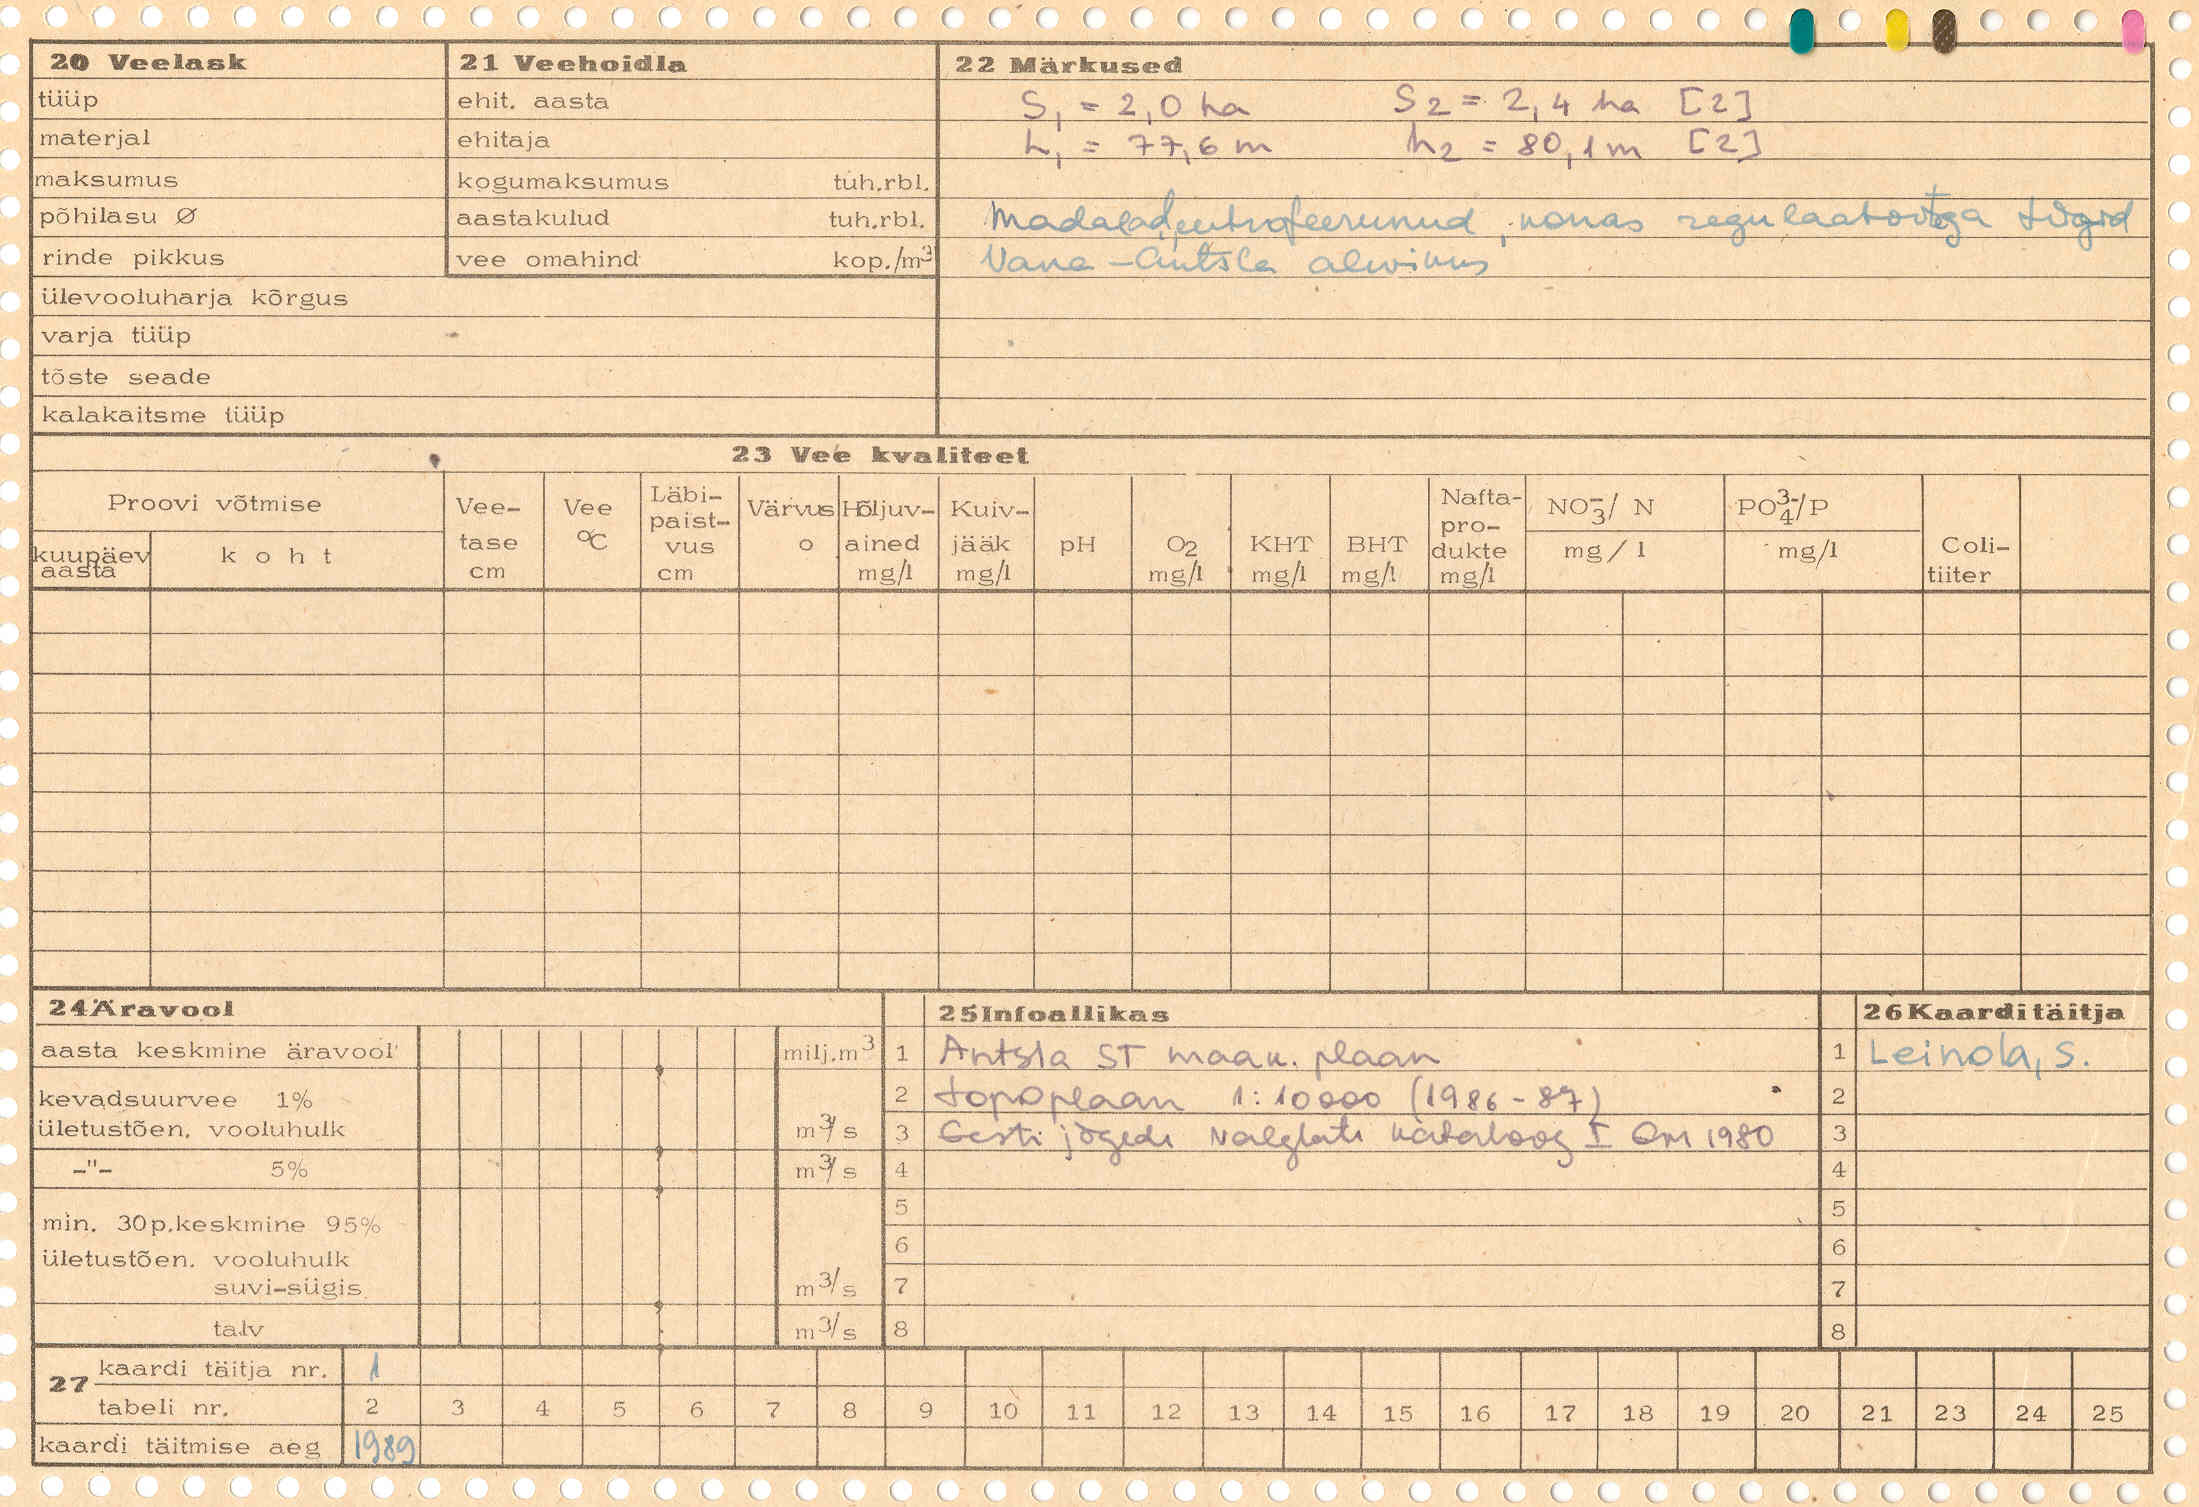 20 Veelask
tüüp
materjal
maksumus
põhilasu Ø
rinde pikkus
ülevooluharja kõrgus
varja tüüp
tõste seade
kalakaitsme tüüp
21 Veehoidla
ehit. aasta
ehitaja
kogumaksumus tuh.rbl.
aastakulud tuh.rbl.
vee omahind kop./m³
22 Märkused
S₁ = 2,0 ha S₂ = 2,4 ha [2]
h₁ = 77,6 m h₂ = 80,1 m [2]
Madalad, eutrofeerunud, regulaatoritega tiigid
Vana-Antsla
23 Vee kvaliteet
Proovi võtmise
kuupäev aasta
koht
Vee-tase cm
Vee °C
Läbi-paist-vus cm
Värvus o
Hõljuv-ained mg/l
Kuiv-jääk mg/l
pH
O₂ mg/l
KHT mg/l
BHT mg/l
Nafta-pro-dukte mg/l
NO₃⁻/ N mg/l
PO₄³⁻/P mg/l
Coli-tiiter
24 Äravool
aasta keskmine äravool milj.m³
kevadsuurvee 1%
ületustõen. vooluhulk m³/s
-"- 5% m³/s
min. 30p.keskmine 95%
ületustõen. vooluhulk
suvi-sügis m³/s
talv m³/s
25 Infoallikas
1 Antsla ST maak. plaan
2 topoplaan 1:10000 (1986-87)
3 Eesti jõgede valglate kataloog I 1980
4
5
6
7
8
26 Kaarditäitja
1 Leinola, S.
2
3
4
5
6
7
8
27 kaardi täitja nr. 1
tabeli nr. 2 3 4 5 6 7 8 9 10 11 12 13 14 15 16 17 18 19 20 21 23 24 25
kaardi täitmise aeg 1989